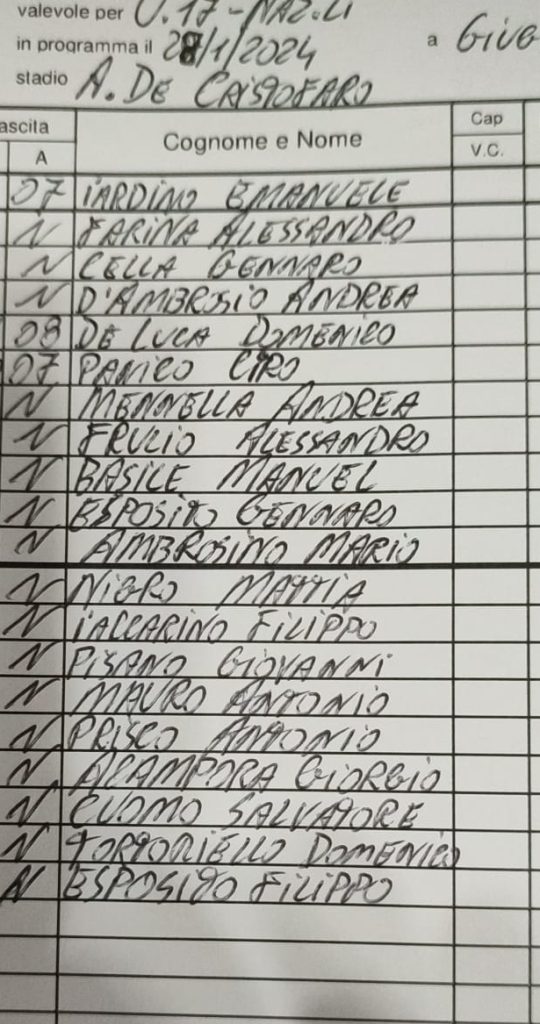 valevole per U.17-NAZ.LI
in programma il 28/1/2024 a GIUG
stadio A. DE CRISTOFARO
ascita Cognome e Nome Cap
A V.C.
07 IARDINO EMANUELE
N FARINA ALESSANDRO
N CELLA GENNARO
N D'AMBROSIO ANDREA
08 DE LUCA DOMENICO
07 PANICO CIRO
N MENNELLA ANDREA
N FRULIO ALESSANDRO
N BASILE MANUEL
N ESPOSITO GENNARO
N AMBROSINO MARIO
N NIGRO MATTIA
N IACCARINO FILIPPO
N PISANO GIOVANNI
N MAURO ANTONIO
N PRISCO ANTONIO
N ACAMPORA GIORGIO
N CUOMO SALVATORE
N TORTORIELLO DOMENICO
N ESPOSITO FILIPPO